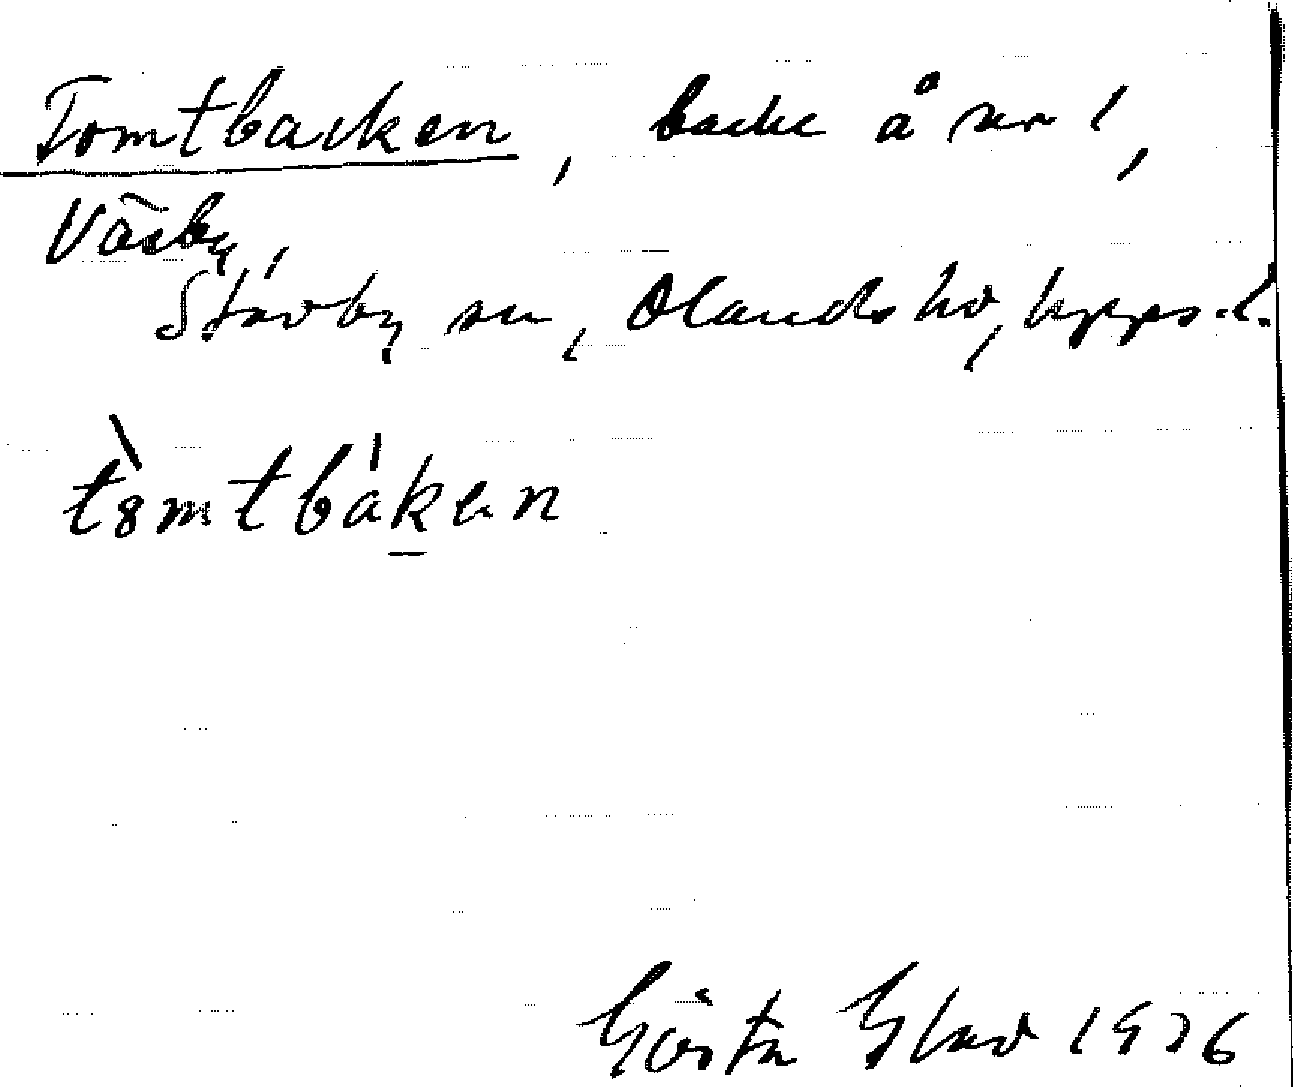 Tomtbacken, backe å nr 1,
Väsby,
Stavby sn, Olands hd, Upps. l.
tòmtbákən
Gösta 1926